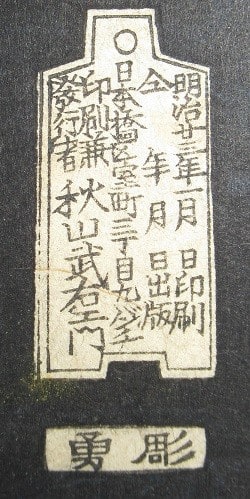 明治廿三年一月 日印刷
仝 年 月 日出版
日本橋区室町三丁目九バンチ
印刷兼
發行者 秋山武右エ門
彫勇